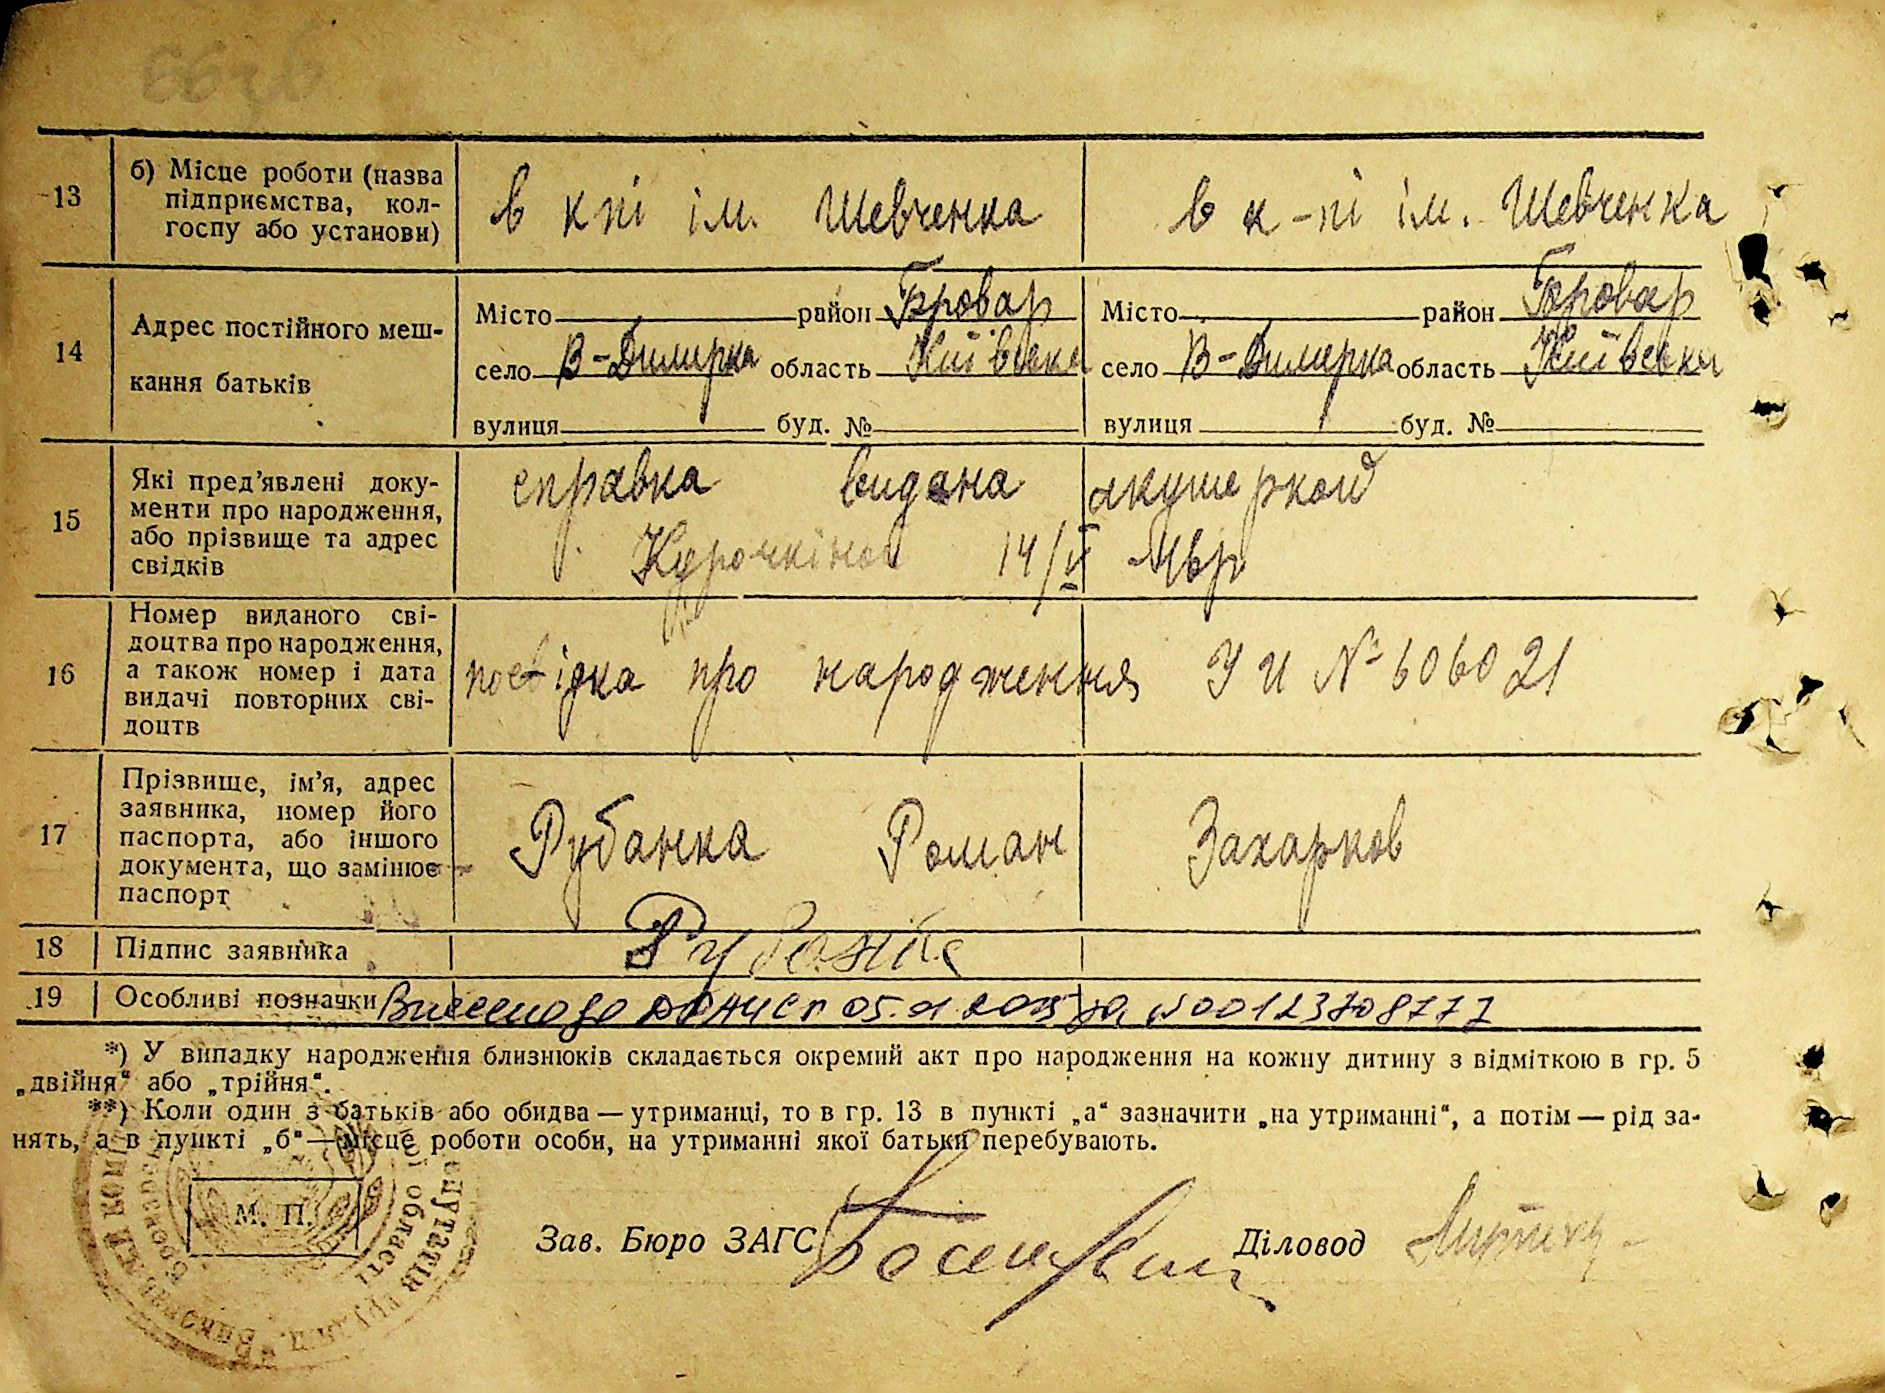 13
б) Місце роботи (назва
підприємства, кол-
госпу або установи)
в кпі ім. Шевченка
в к-пі ім. Шевченка
14
Адрес постійного меш-
кання батьків
Місто район Бровар
село В-Димерка область Київська
вулиця буд. №
Місто район Бровар
село В-Димерка область Київська
вулиця буд. №
15
Які пред’явлені доку-
менти про народження,
або прізвище та адрес
свідків
справка видана акушеркой
Курочкіной 14/
16
Номер виданого сві-
доцтва про народження,
а також номер і дата
видачі повторних сві-
доцтв
посвідка про народження У И № 606021
17
Прізвище, ім’я, адрес
заявника, номер його
паспорта, або іншого
документа, що замінює
паспорт
Рубанка Роман Захарков
18
Підпис заявника
19
Особливі позначки
Внесено до за №00123708777
*) У випадку народження близнюків складається окремий акт про народження на кожну дитину з відміткою в гр. 5
„двійня“ або „трійня“.
**) Коли один з батьків або обидва — утриманці, то в гр. 13 в пункті „а“ зазначити „на утриманні“, а потім — рід за-
нять, а в пункті „б“ — місце роботи особи, на утриманні якої батьки перебувають.
М. П.
Зав. Бюро ЗАГС
Діловод